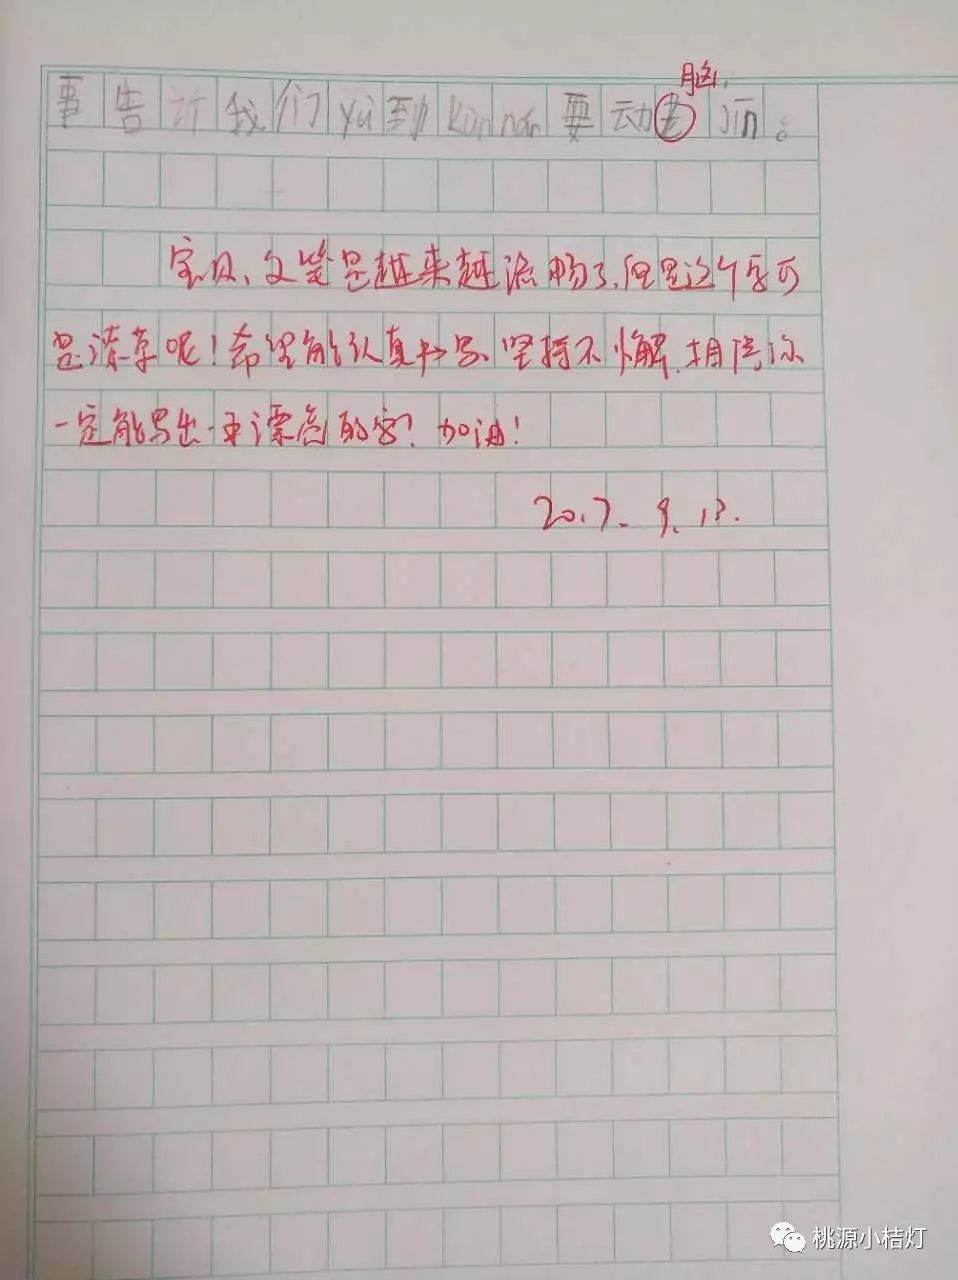 脑
事告诉我们yù到kùn nán要动老jīn。
宝贝、文笔是越来越流畅了,但是这个字可
是潦草呢!希望能认真书写、坚持不懈,相信你
一定能写出一手漂亮的字!加油!
2017.9.13.
桃源小桔灯